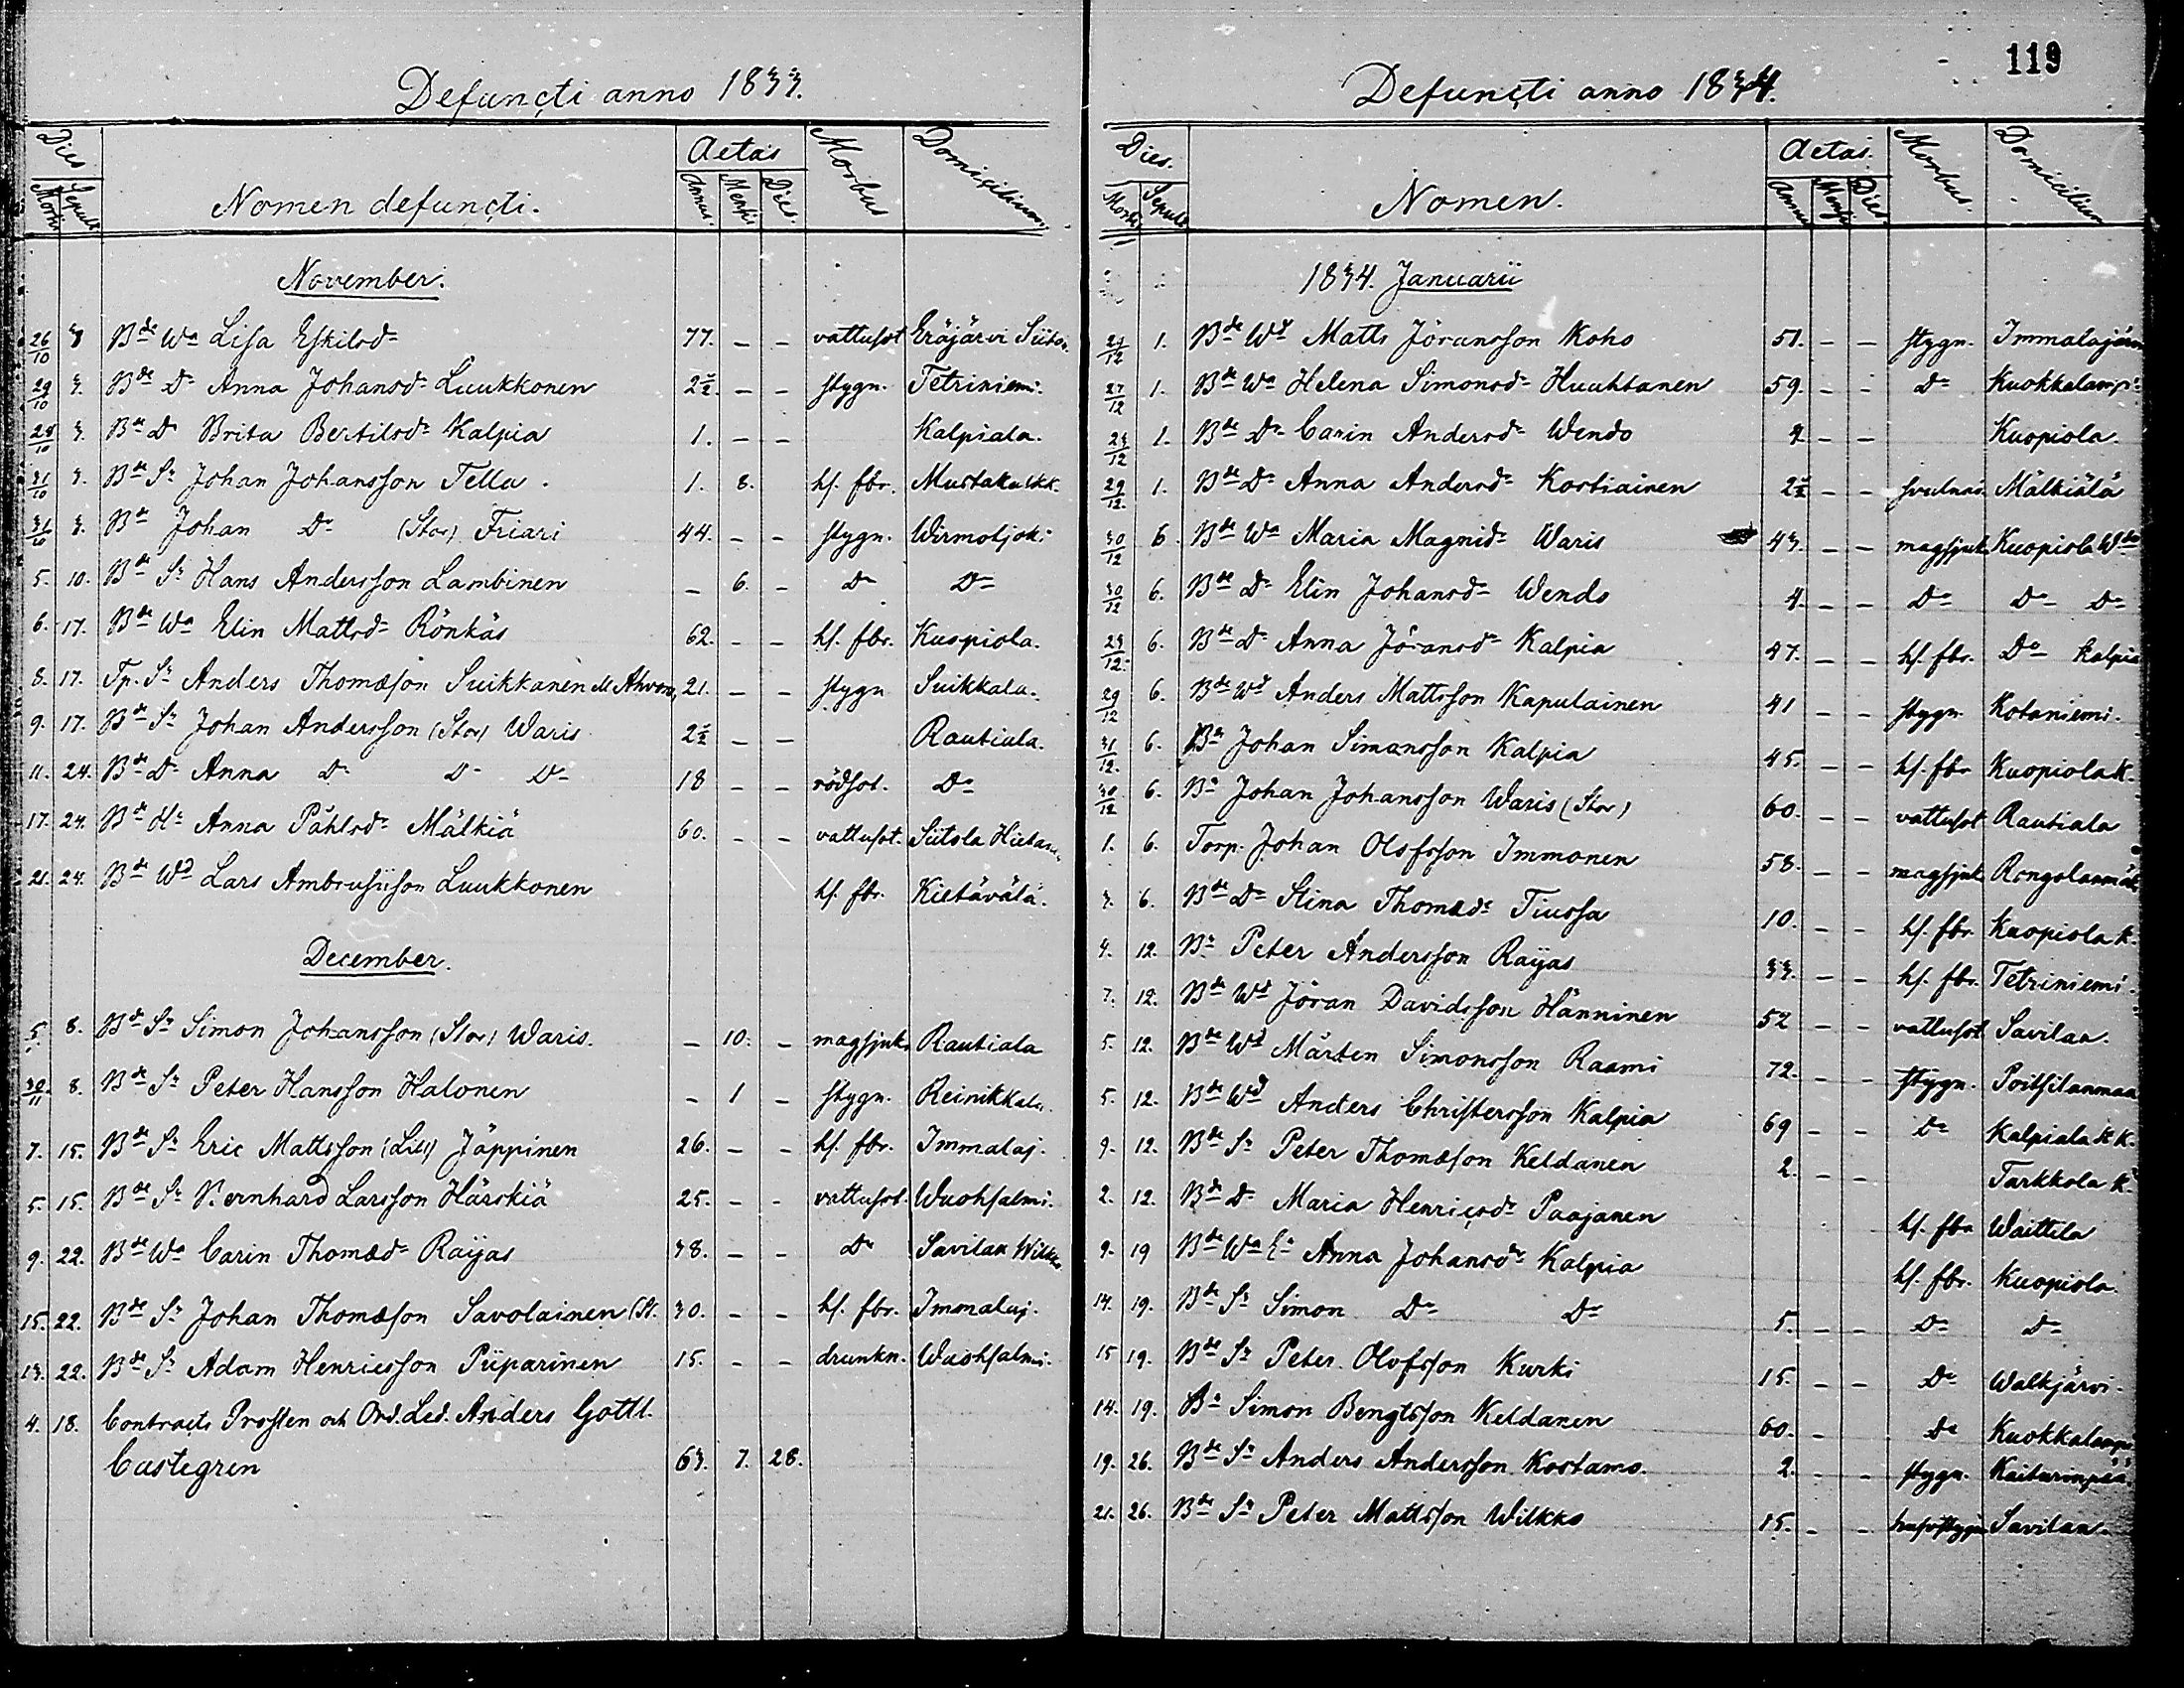 119
Defuncti anno 1833.
Dies Mortis Sepult Nomen defuncti. Aetas Annus. Mensis Dies. Morbus Domicilium.
November.
26/10 3 Bde Wa Lisa Eskilsdr 77. – – vattusot Eräjärvi
29/10 3. Bde Dr Anna Johansdr Luukkonen 2½ – – stygn. Tetriniemi.
28/10 3. Bde Dr Brita Bertilsdr Kalpia 1. – – Kalpiala.
31/10 3. Bde Sn Johan Johansson Tella. 1. 8. hf. fbr.
31/10 3. Bde Johan Do (Stor) Friari 44. – – stygn. Wirmotjoki
5. 10. Bde Sn Hans Andersson Lambinen – 6. – Do Do
6. 17. Bde Wa Elin Mattsdr Rönkäs 62. – – hf. fbr. Kuopiola.
8. 17. Tp. Sn Anders Thomæson Suikkanen 21. – – stygn Suikkala.
9. 17. Bde Sn Johan Andersson (Stor) Waris 2½ – – Rautiala.
11. 24. Bde Dr Anna Do Do Do 18 – – rödsot. Do
17. 24. Bde Hu Anna Påhlsdr Mälkiä 60. – – vattusot. Siitola
21. 24. Bde Wd Lars Ambrusiison Luukkonen hf. fbr. Kietävälä.
December.
5. 8. Bde Sn Simon Johansson (Stor) Waris. – 10. – magsjuk. Rautiala
30/11 8. Bde Sn Peter Hansson Halonen – 1 – stygn. Reinikkala.
7. 15. Bde Sn Eric Mattsson (Lill) Jäppinen 26. – – hf. fbr. Immalaj.
5. 15. Bde Sn Bernhard Larsson Härskiä 25. – – vattusot. Wuohsalmi.
9. 22. Bde Wa Carin Thomædr Raijas 38. – – Do Savilax
15. 22. Bde Sn Johan Thomæson Savolainen (St. 30. – – hf. fbr. Immalaj.
13. 22. Bde Sn Adam Henricsson Piiparinen 15. – – drunkn. Wuohsalmi.
4. 18. Contracts Prosten och Ord. Led. Anders Gottl.
Castegren 63. 7. 28.
Defuncti anno 1834.
Dies. Mortis Sepult Nomen. Aetas. Annus Mensis Dies. Morbus. Domicilium
1834. Januarii
1. Bde Wd Matts Jöransson Koho 51. – – stygn. Immalajärvi
27/12 1. Bde Wa Helena Simonsdr Huuhtanen 59. – – Do Kuokkalampi
23/12 1. Bde Dr Carin Andersdr Wendo – – Kuopiola.
29/12. 1. Bde Dr Anna Andersdr Kortiainen 2½ – – Mälkiälä
30/12 6. Bde Wa Maria Magnidr Waris 43. – – magsjuk. Kuopiola
30/12 6. Bde Dr Elin Johansdr Wendo 4. – – Do Do Do
23/12. 6. Bde Dr Anna Jöransdr Kalpia 47. – – hf. fbr. Do Kalpia
29/12 6. Bde Wd Anders Mattsson Kapulainen 41 – – stygn. Kotaniemi.
31/12. 6. Bn Johan Simonsson Kalpia 45. – – hf. fbr Kuopiola K.
30/12 6. Bn Johan Johansson Waris (Stor) 60. – – vattusot Rautiala
1. 6. Torp. Johan Olofsson Immonen 58. – – magsjuk
3. 6. Bde Dr Stina Thomædr Tiussa 10. – – hf. fbr Kuopiola K.
4. 12. Bn Peter Andersson Raijas 33. – – hf. fbr. Tetriniemi.
7. 12. Bde Wd Jöran Davidsson Hänninen 52 – – vattusot Savilax.
5. 12. Bde Wd Mårten Simonsson Raami 72. – – stygn. Poitsilanmaa
5. 12. Bde Wd Anders Christersson Kalpia 69 – – Do Kalpiala KK.
9. 12. Bde Sn Peter Thomæson Keldanen 2. – – Tarkkola K.
2. 12. Bde Dr Maria Henricsdr Paajanen hf. fbr Waittila
9. 19 Bde Wa Anna Johansdr Kalpia hf. fbr. Kuopiola.
14. 19. Bde Sn Simon Do Do 5. – – Do Do
15 19. Bde Sn Peter Olofsson Kurki 15. – – Do Walkjärvi.
14. 19. Bn Simon Bengtsson Keldanen 60. – Do Kuokkalampi
19. 26. Bde Sn Anders Andersson Kostamo. 2. – – stygn. Kaiturinpää.
21. 26. Bde Sn Peter Mattsson Wilkko 15. – – Savilax.